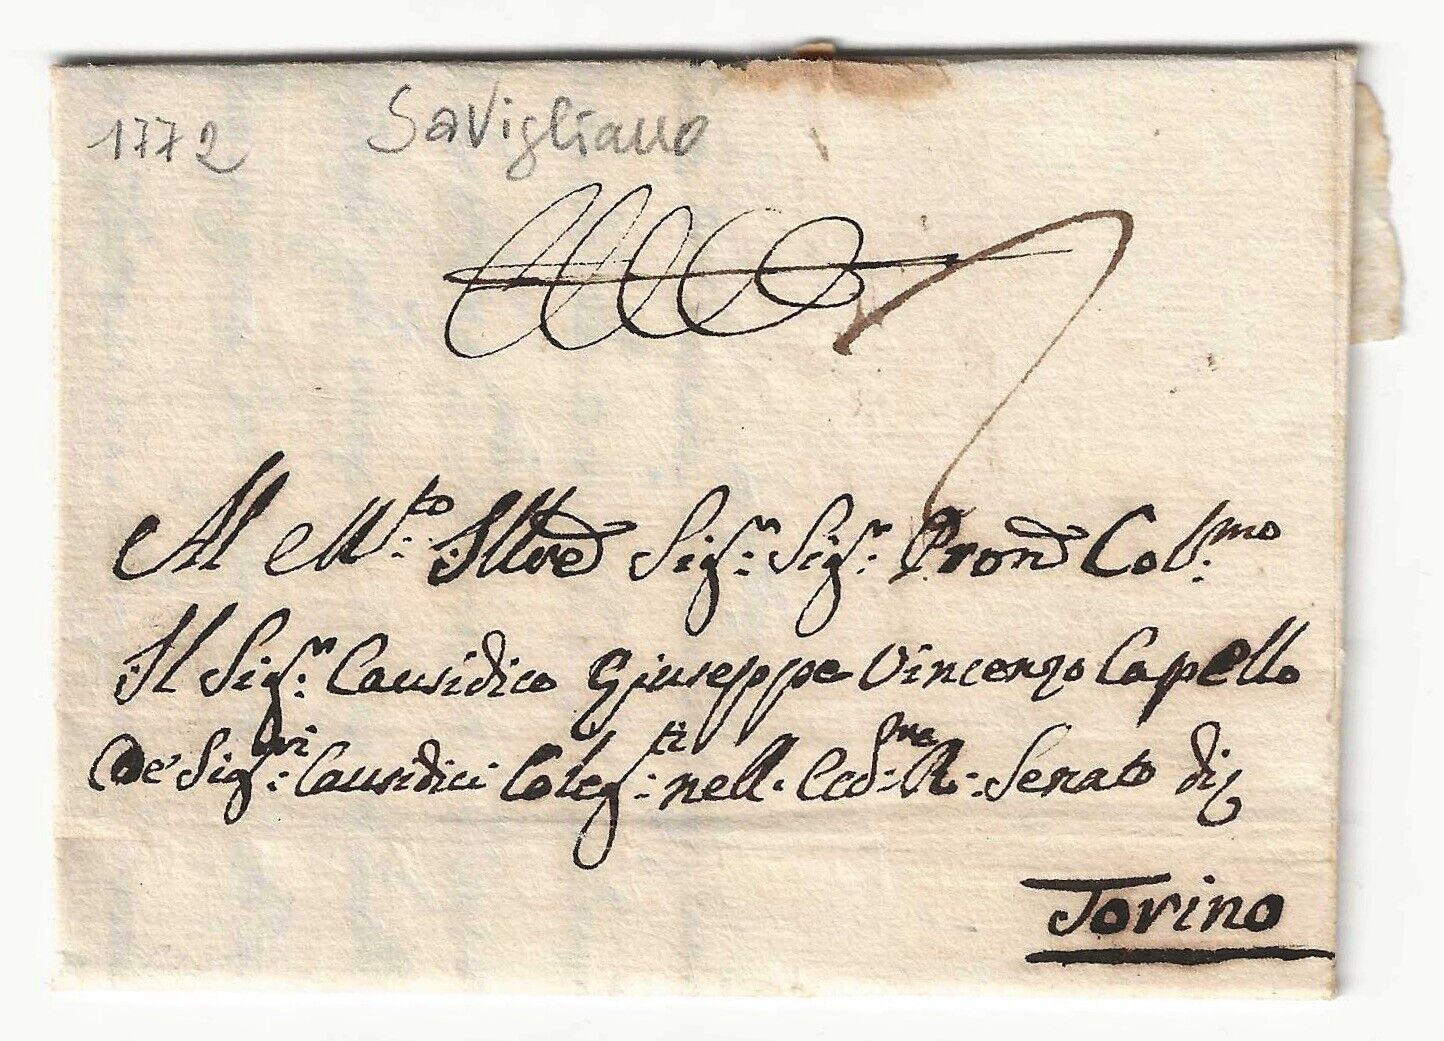 1772 Savigliano
7
Al M.to Illre Sig.r Sig.r Pron Col.mo
Il Sig.r Causidico Giuseppe Vincenzo Capello
De' Sig.ri Causidici Coleg.ti nell. Ecc.mo R. Senato di
Torino